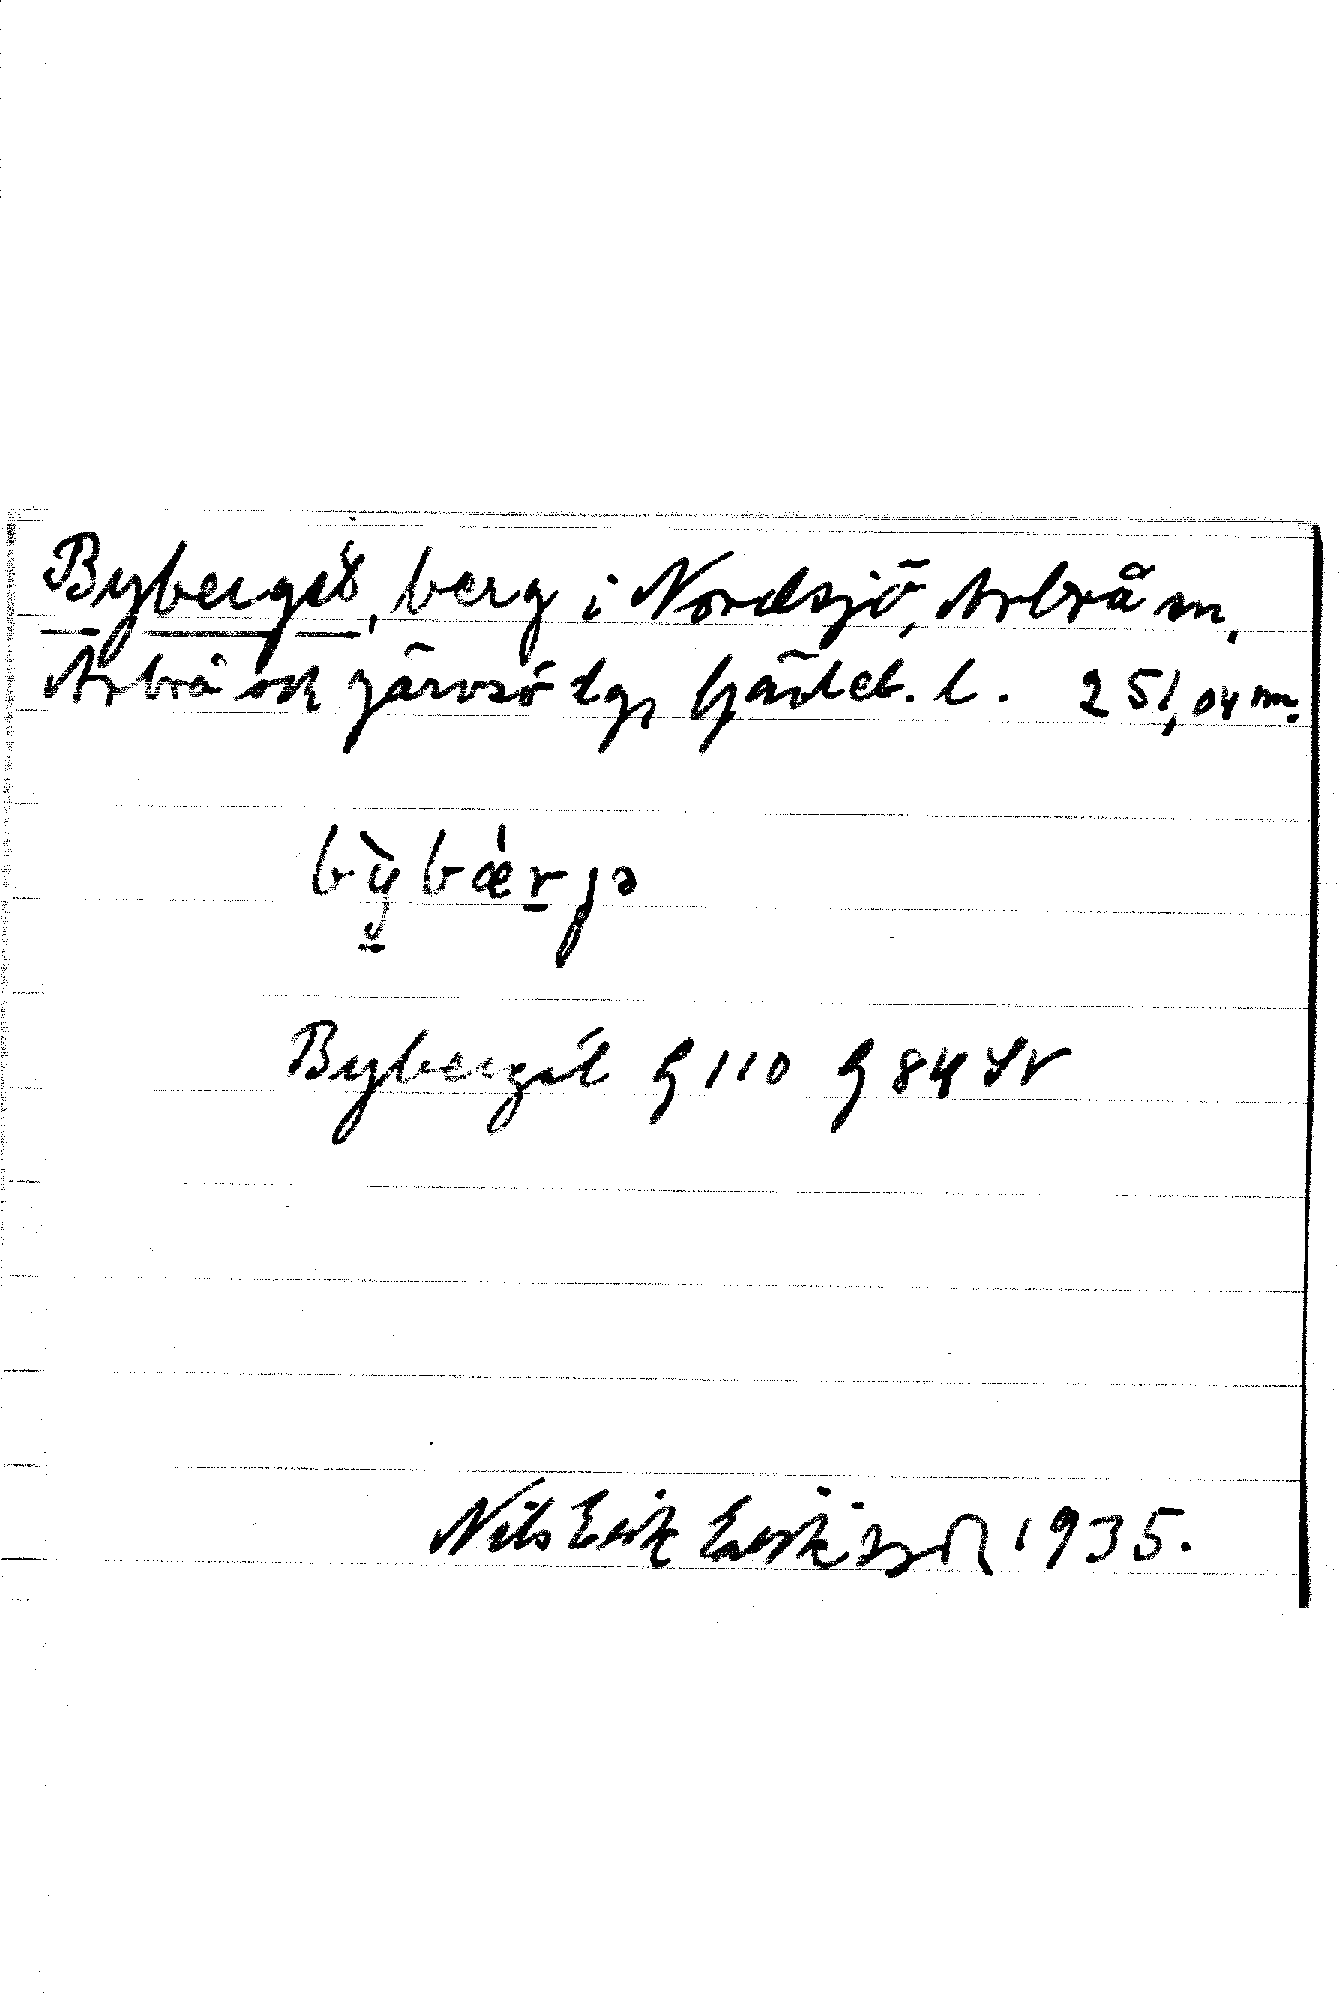 Byberget, berg i Nordsjö, Arbrå sn,
Arbrå och Järvsö tg, Gävleb. l. 251,04 m.
bỳ̱bǽr̠jə
Byberget G 110 G 84 SV
Nils Erik Eriksson 1935.